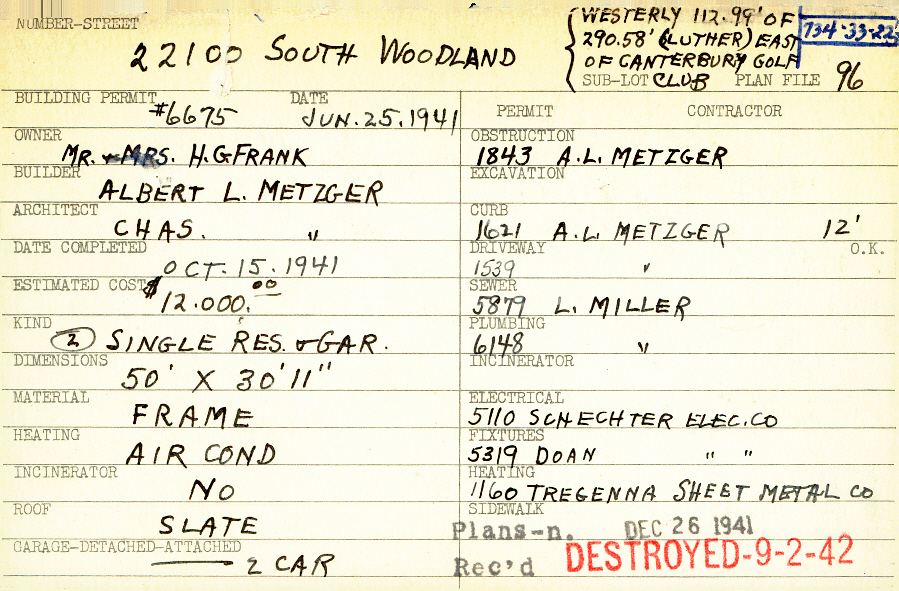 NUMBER-STREET
22100 SOUTH WOODLAND
WESTERLY 112.99' OF
290.58' (LUTHER) EAST
OF CANTERBURY GOLF
SUB-LOT CLUB PLAN FILE 96
734-33-22
BUILDING PERMIT DATE
#6675 JUN.25.1941
OWNER
MR. & MRS. H.G FRANK
BUILDER
ALBERT L. METZGER
ARCHITECT
CHAS. "
DATE COMPLETED
OCT. 15. 1941
ESTIMATED COST
$12.000.00
KIND
2 SINGLE RES. & GAR.
DIMENSIONS
50' X 30'11"
MATERIAL
FRAME
HEATING
AIR COND
INCINERATOR
NO
ROOF
SLATE
GARAGE-DETACHED-ATTACHED
2 CAR
PERMIT CONTRACTOR
OBSTRUCTION
1843 A.L. METZGER
EXCAVATION
CURB
1621 A.L. METZGER 12'
DRIVEWAY O.K.
1539 "
SEWER
5879 L. MILLER
PLUMBING
6148 "
INCINERATOR
ELECTRICAL
5110 SCHECHTER ELEC.CO
FIXTURES
5319 DOAN " "
HEATING
1160 TREGENNA SHEET METAL CO
SIDEWALK
Plans-n. DEC 26 1941
Rec'd DESTROYED-9-2-42